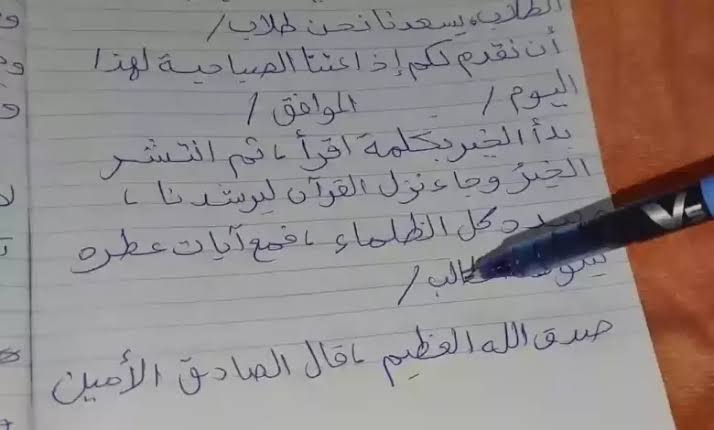 الطلاب، يسعدنا نحن طلاب /
أن نقدم لكم إذاعتنا الصباحية لهذا
اليوم / الموافق /
بدأ الخير بكلمة اقرأ، ثم انتشر
الخيرُ وجاء نزل القرآن ليرشدنا،
كل الظلماء، فمع آيات عطره
صدق الله العظيم، قال الصادق الأمين